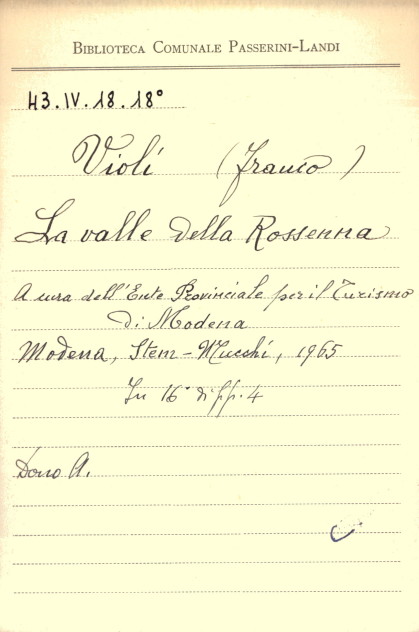 BIBLIOTECA COMUNALE PASSERINI-LANDI
43.IV.18.18°
Violi (Franco)
La valle della Rossenna
A cura dell'Ente Provinciale per il Turismo
di Modena
Modena, Stem-Mucchi, 1965
In 16° di pp. 4
Dono A.
C